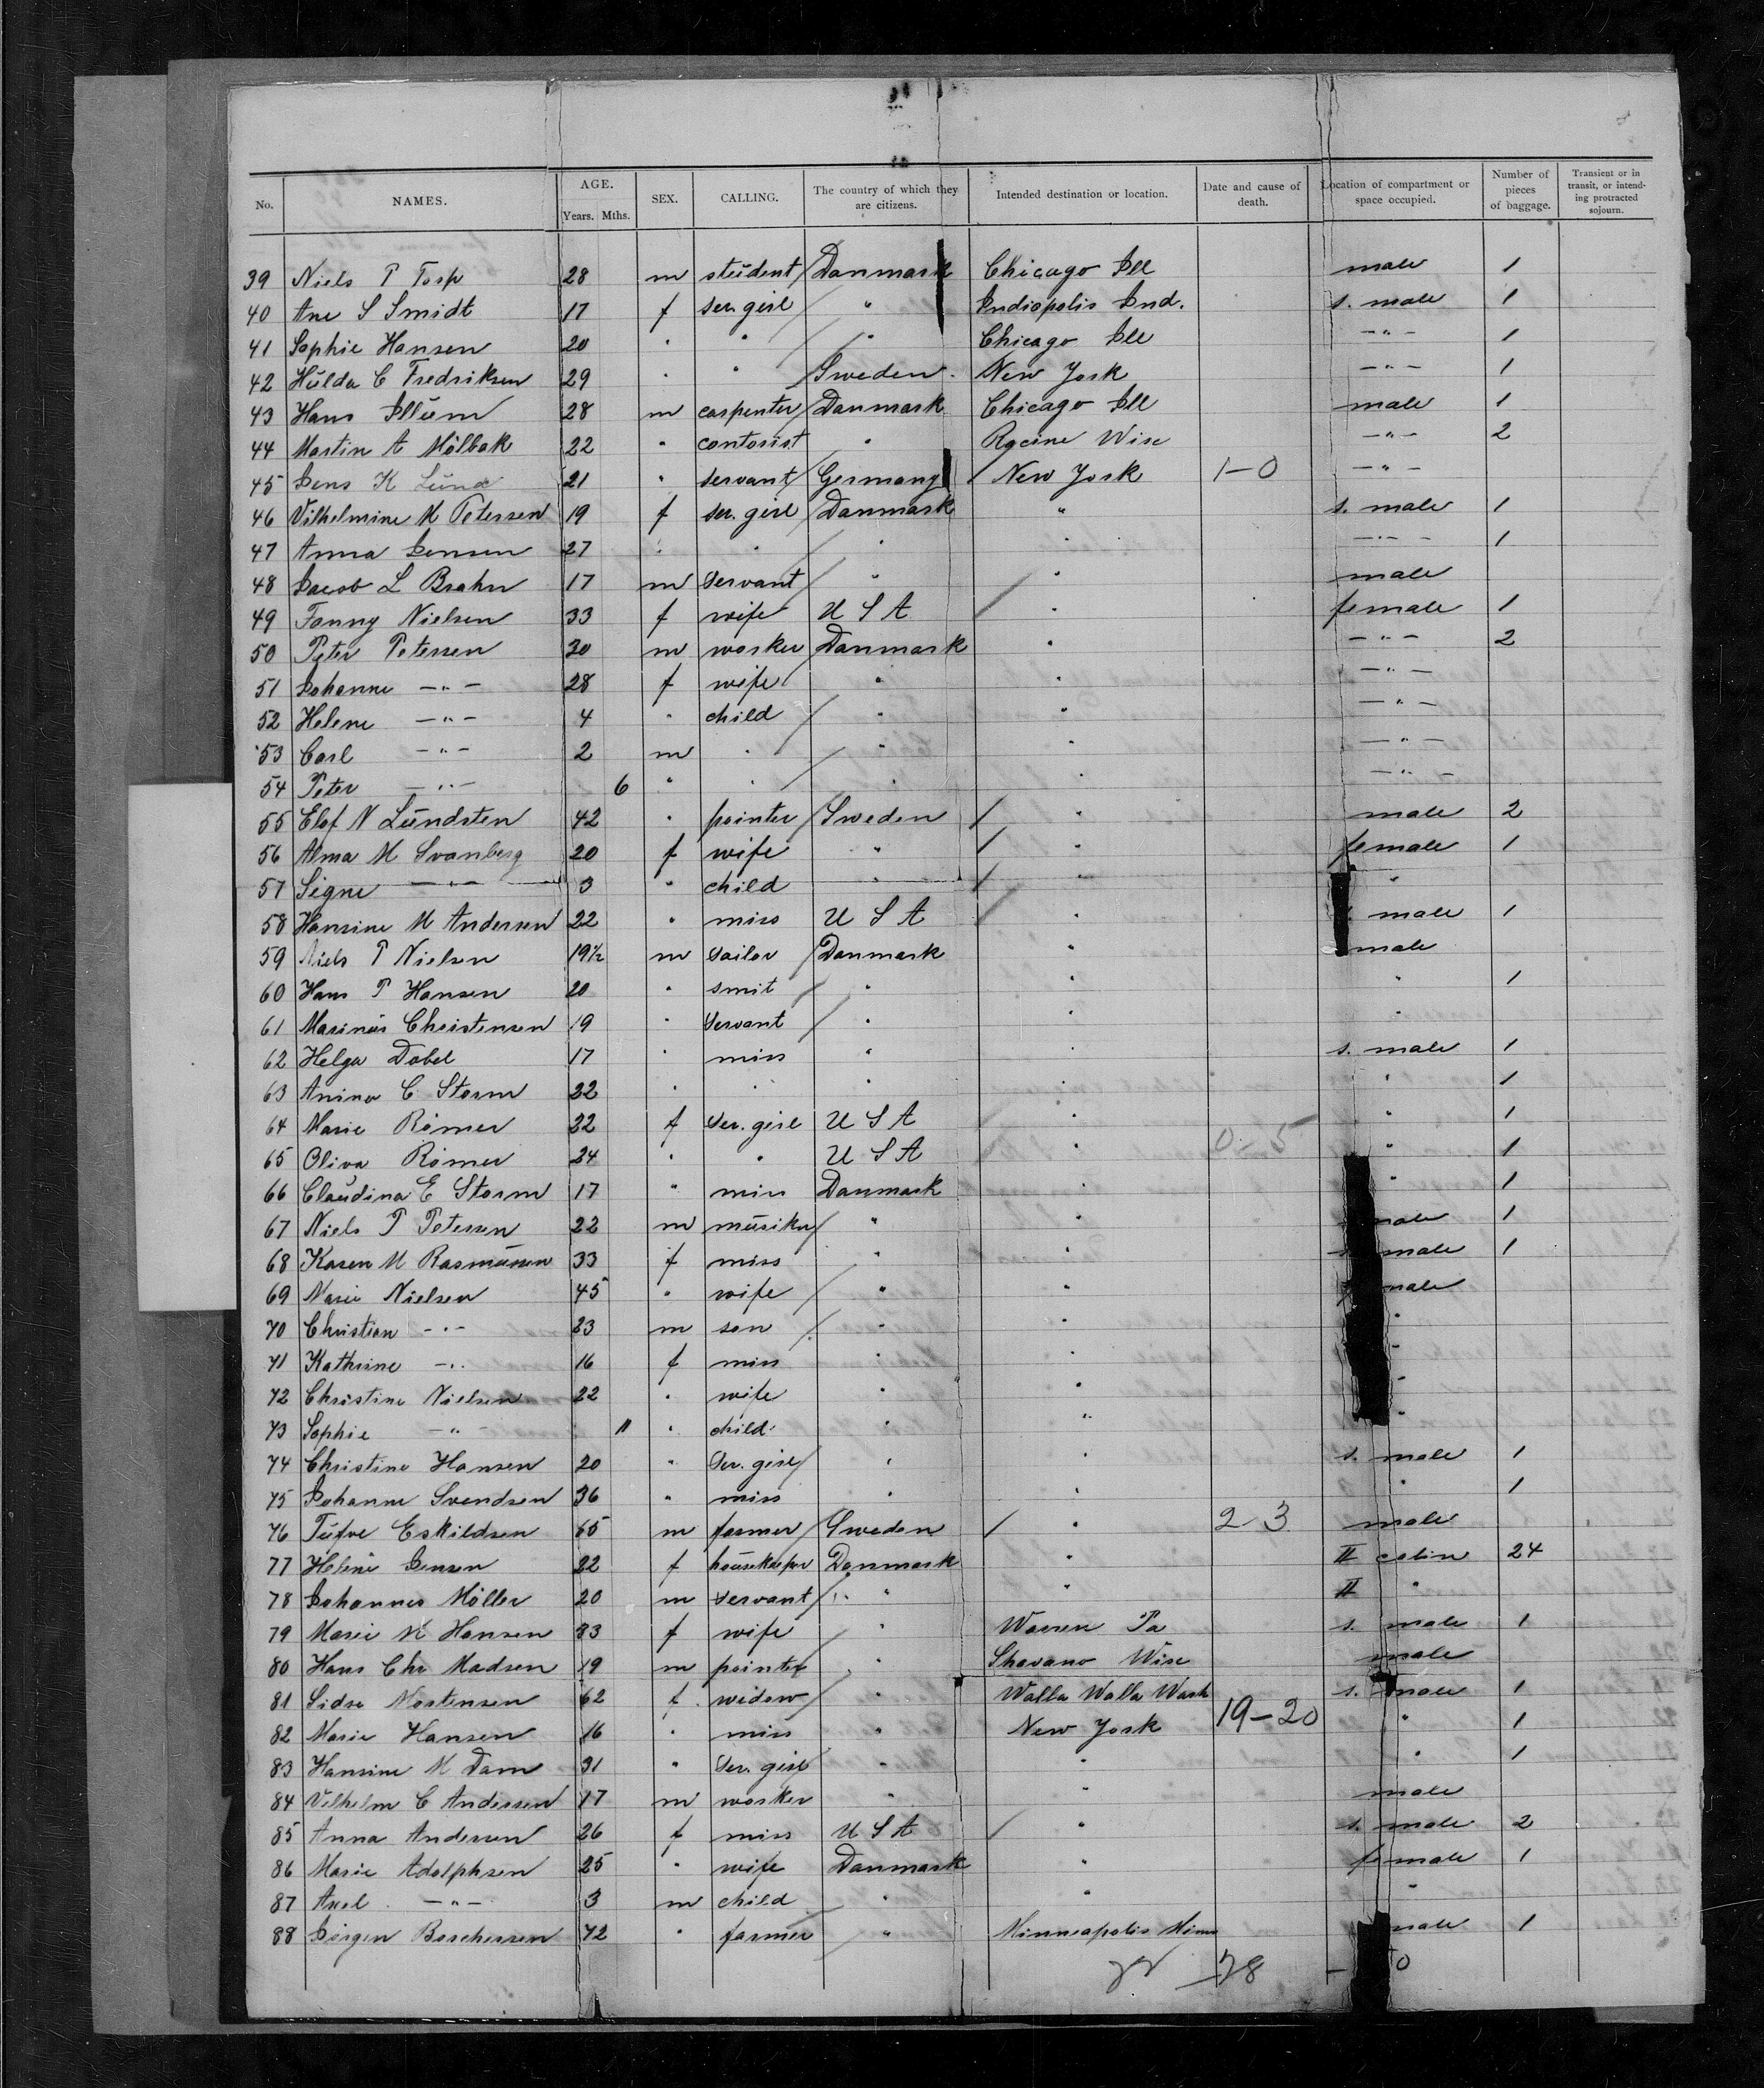 No. NAMES. AGE. Years. Mths. SEX. CALLING. The country of which they are citizens. Intended destination or location. Date and cause of death. Location of compartment or space occupied. Number of pieces of baggage. Transient or in transit, or intending protracted sojourn.
39 Niels P Torp 28 m student Danmark Chicago Ill male 1
40 Ane S Smidt 17 f ser. girl " Indiopolis Ind. s. male 1
41 Sophie Hansen 20 " " " Chicago Ill -"- 1
42 Hulda C Fredriksen 29 " " Sweden New York -"- 1
43 Hans Illum 28 m carpenter Danmark Chicago Ill male 1
44 Martin A Mölbak 22 " contorist " Racine Wisc -"- 2
45 Jens K Lund 21 " servant Germany New York 1-0 -"-
46 Vilhelmine M Petersen 19 f ser. girl Danmark " s. male 1
47 Anna Jensen 27 " " " " -"- 1
48 Jacob L Brahn 17 m servant " " male
49 Fanny Nielsen 33 f wife U S A " female 1
50 Peter Petersen 30 m worker Danmark " -"- 2
51 Johanne -"- 28 f wife " " -"-
52 Helene -"- 4 " child " " -"-
53 Carl -"- 2 m " " " -"-
54 Peter -"- 6 " " " " -"-
55 Elof N Lundsten 42 " painter Sweden " male 2
56 Alma M Svanberg 20 f wife " " female 1
57 Signe -"- 3 " child " " "
58 Hansine M Andersen 22 " miss U S A " male 1
59 Niels P Nielsen 19½ m sailor Danmark " male
60 Hans P Hansen 20 " smit " " " 1
61 Marinus Christensen 19 " servant " " "
62 Helga Dabel 17 " miss " " s. male 1
63 Anina C Storm 22 " " " " " 1
64 Marie Römer 22 f ser. girl U S A " " 1
65 Oliva Römer 24 " " U S A " 0-5 " 1
66 Claudina E Storm 17 " miss Danmark " " 1
67 Niels P Petersen 22 m musiker " " male 1
68 Karen M Rasmussen 33 f miss " " male 1
69 Marie Nielsen 45 " wife " " male
70 Christian -"- 23 m son " " "
71 Kathrine -"- 16 f miss " " "
72 Christine Nielsen 22 " wife " " "
73 Sophie -"- 11 " child " " "
74 Christine Hansen 20 " ser. girl " " s. male 1
75 Johanne Svendsen 36 " miss " " " 1
76 Tufve Eskildsen 65 m farmer Sweden " 2-3 male
77 Helene Jensen 22 f housekeeper Danmark " II cabin 24
78 Johannes Möller 20 m servant " " II "
79 Marie K Hansen 33 f wife " Warren Pa s. male 1
80 Hans Chr Madsen 19 m painter " Shavano Wisc male
81 Sidse Mortensen 62 f widow " Walla Walla Wash s. male 1
82 Marie Hansen 16 " miss " New York 19-20 " 1
83 Hansine M Dam 31 " ser. girl " " " 1
84 Vilhelm C Andersen 17 m worker " " male
85 Anna Andersen 26 f miss U S A " s. male 2
86 Marie Adolphsen 25 " wife Danmark " female 1
87 Axel -"- 3 m child " " "
88 Jörgen Borchersen 72 " farmer " Minneapolis Minn male 1